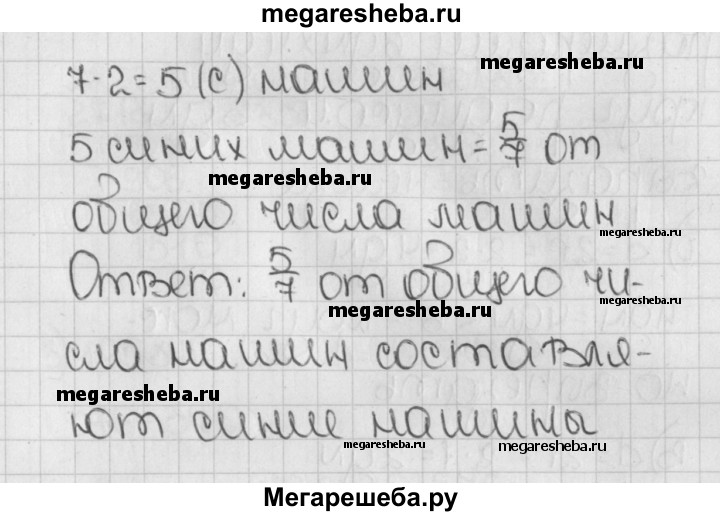 megaresheba.ru
7-2=5 (с) машин
megaresheba.ru
5 синих машин = 5/7 от
megaresheba.ru
общего числа машин
megaresheba.ru
Ответ: 5/7 от общего чи-
megaresheba.ru
сла машин составля-
megaresheba.ru
ют синие машины
megaresheba.ru
megaresheba.ru
Мегарешеба.ру